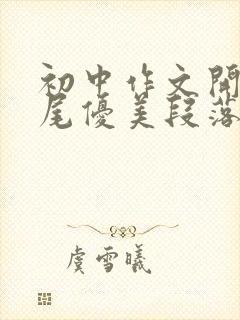 初中作文開
尾優美段落
虞雪曦